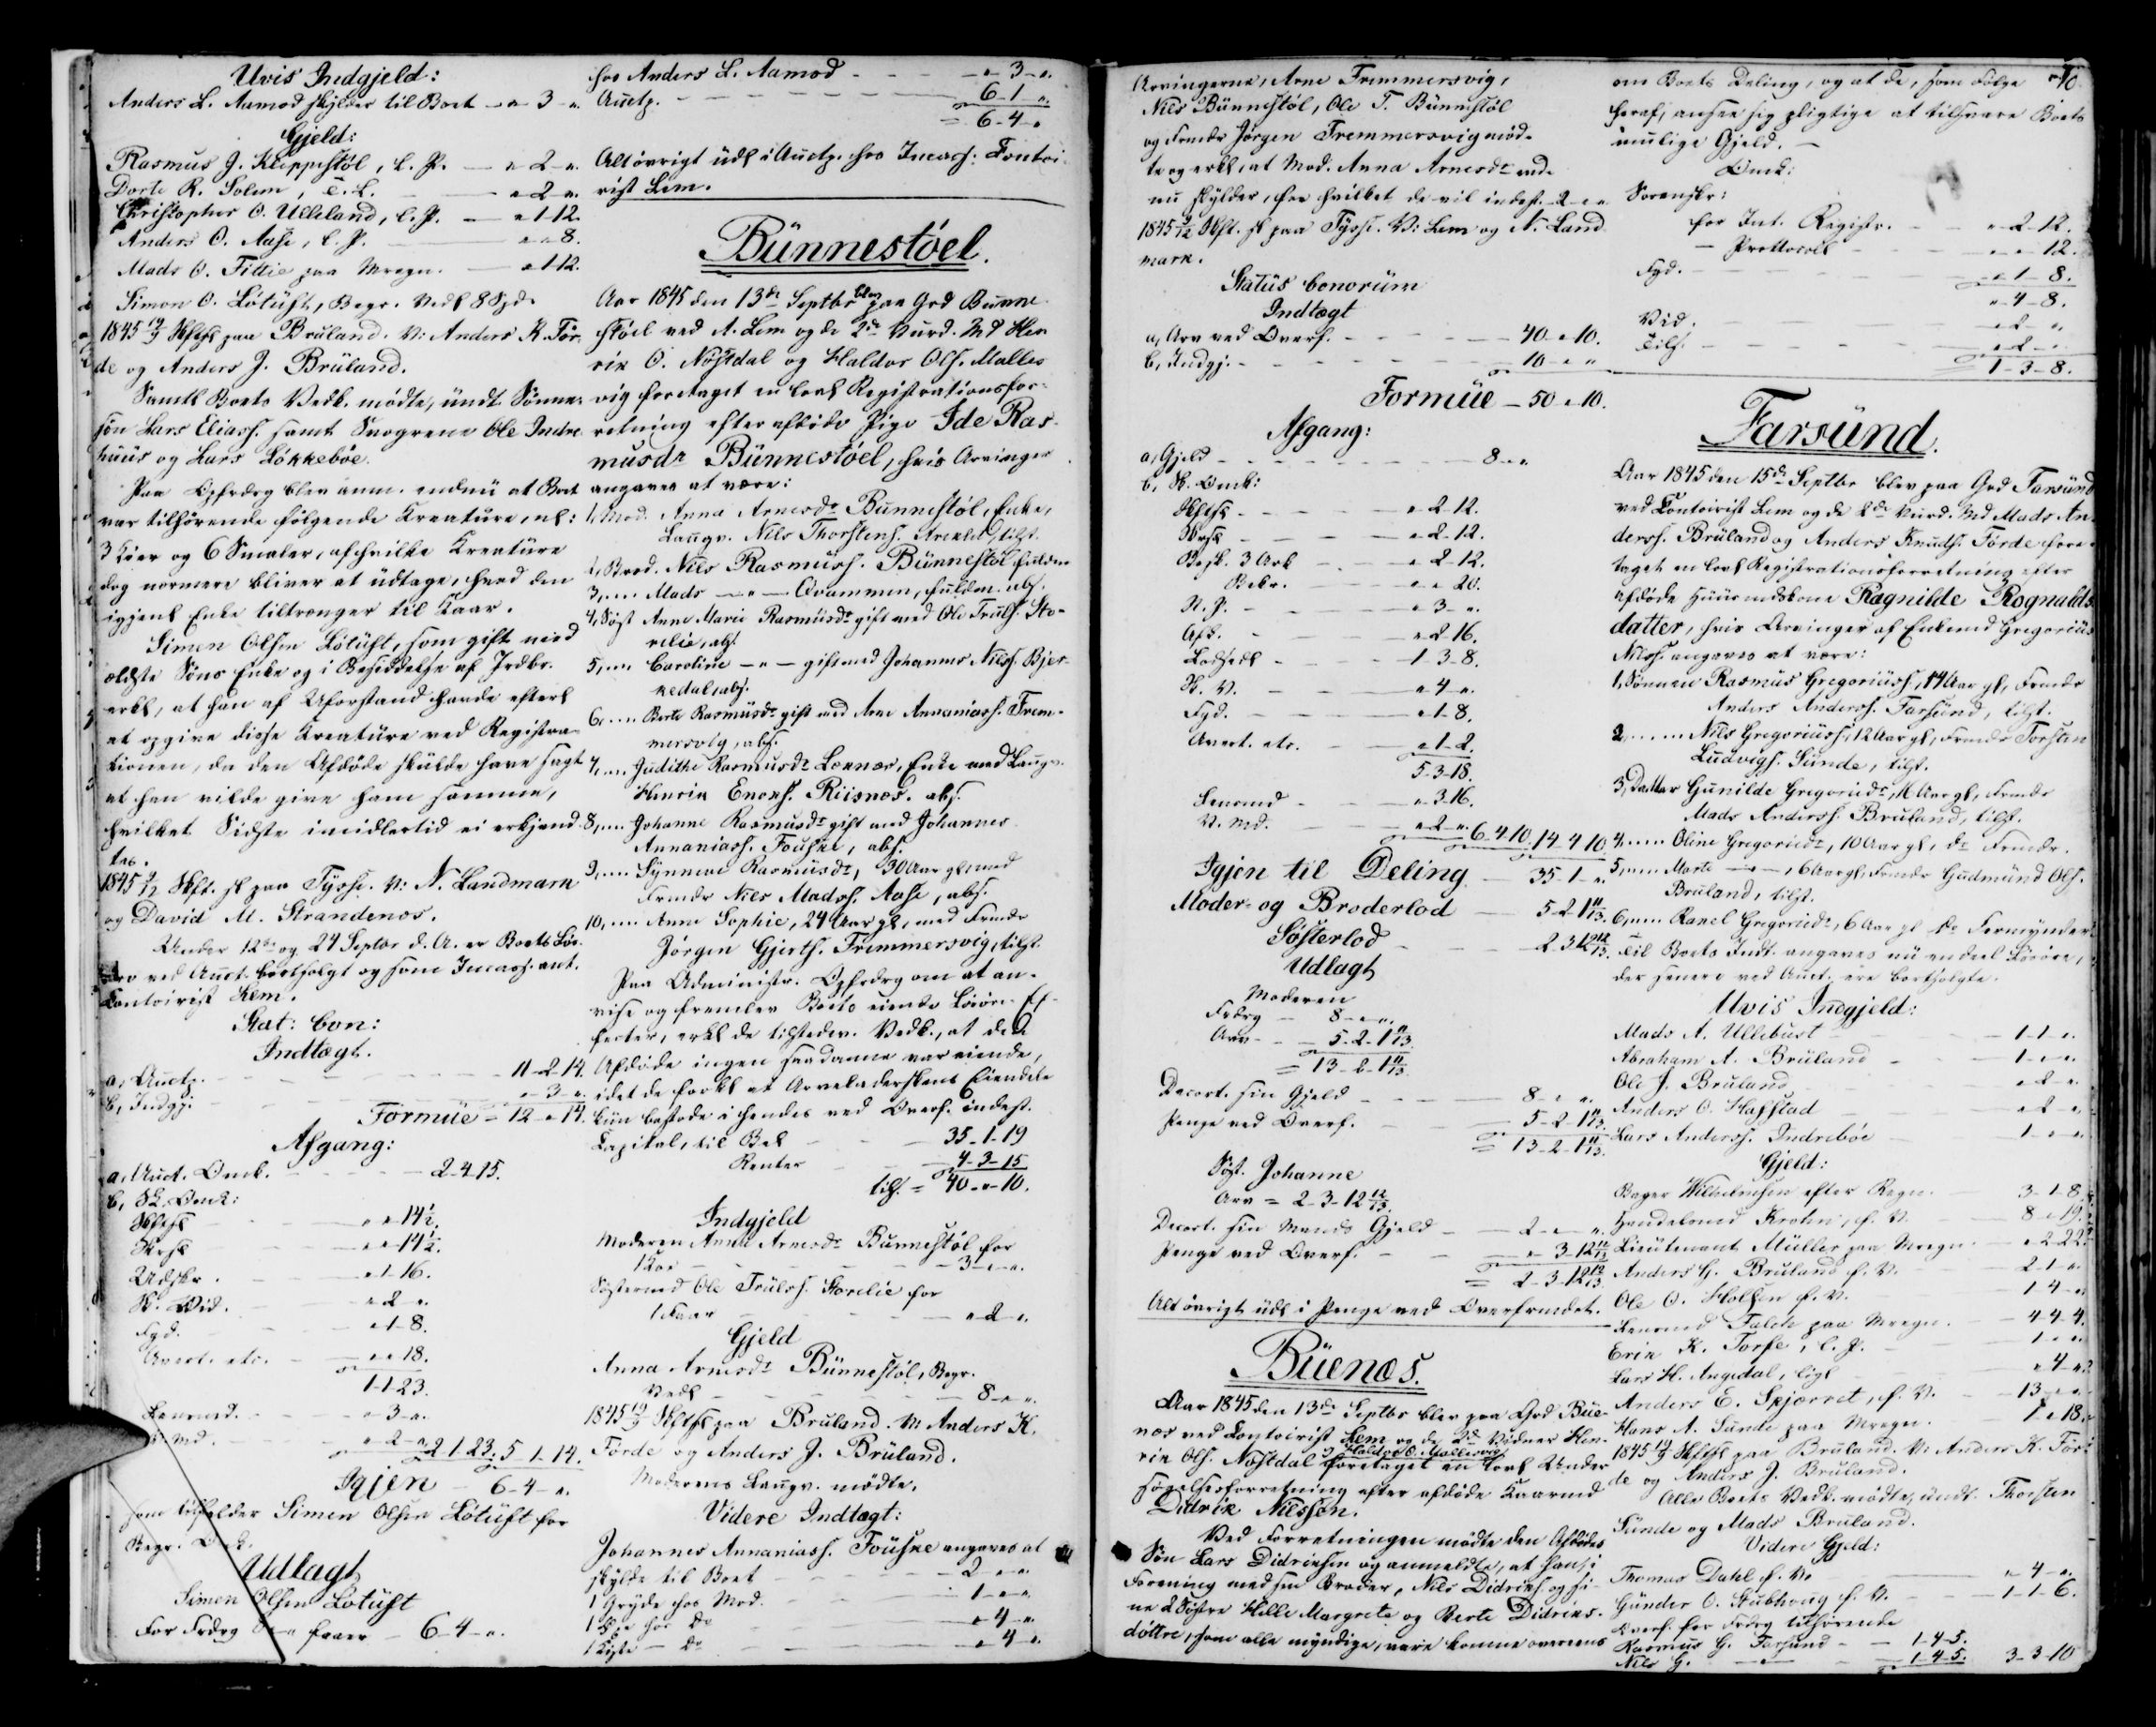 Uvis Indgjeld:
Anders L. Aamod skylder til Boet - " 3 - "
Gjeld:
Rasmus J. Kleppestøl, l. P. - " 2 - "
Dorte R. Solem, l. L. - " 2 - "
Christopher O. Ulleland, l. P. - " 1-12.
Anders O. Aase, l. P. - " " 8.
Mads O. Tillie paa Mregn. - " 1-12.
Simon O. Løtuft, Begr. Vedk 8 Spd.
1845 19/9 paa Bruland. V: Anders K. Før-
de og Anders J. Bruland.
Samtl Boets Vedk. mødte, undt Sønne-
søn Lars Eliass. samt Svogrene Ole Indre
huus og Lars Løkkebøe.
Paa Opfordrg blev anm. endnu at Boet
var tilhørende følgende Kreature, nl:
3 Kiør og 6 Smaler, af hvilke Kreature
dog nærmere bliver at udtage, hvad den
igjenl Enke tiltrænger til Kaar.
Simen Olsen Løtuft, som gift med
ældste Søns Enke og i Besiddelse af Jrdbr.
erkl, at han af Uforstand havde efterl
at opgive disse Kreature ved Registra-
tionen, da den Afdøde skulde have sagt
at han vilde give ham samme,
hvilket Sidste imidlertid ei erkjend-
tes.
1845 9/12 Skft. sl paa Tysse. V: N. Landmark
og David M. Strandenæs.
Under 12te og 24 Septbr d. A. er Boets Løs-
øre ved Auct. bortsolgt og som Incass. ant.
Contoirist Lem.
Stat: bon:
Indtægt.
a, Auctp. - 11-2-14.
b, Indgj: - " 3 - "
Formue = 12 - " 14.
Afgang:
a, Auct. Omk. - 2-4-15.
b, Sk. Omk:
" " 14½.
" " 14½.
Udskr. - " 1-16.
Sk. Vid. - " 2 - "
Fgd. - " 1-8.
Avert. etc. - " " 18.
1-1-23.
Lensmd. - " 3 - "
V. Md. - " 2 - " 2-1-23. 5-1-14.
Igjen - 6-4- "
som tilfalder Simen Olsen Løtuft for
Begr. Omk.
Udlagt
Simen Olsen Løtuft
For Fodrg - 6-4- "
hos Anders L. Aamod - " 3 - "
Auctp. - 6-1 "
= 6-4- "
Alt øvrigt udl i Auctp. hos Incass: Contoi-
rist Lem.
Bünnestøel.
Aar 1845 den 13de Septbr blev paa Grd Bunne-
støel ved A. Lem og de 2de Vurd. Md Hen
rik O. Nøstdal og Haldor Ols. Malles
vig foretaget en lovl Registrationsfor-
retning efter afdøde Pige Ide Ras-
musdr Bünnestøel, hvis Arvinger
angaves at være:
1, Mod. Anna Arnesdr Bünnestøl, Enke,
Laugv. Nils Thorstens. tilst.
2, Brod. Nils Rasmuss. Bünnestøl fuldm
3, " Mads - " - Qvammen, fuldm. abs.
4, Søst Anne Marie Rasmusdr gift med Ole Truls. Sto-
relie, abs.
5, " Caroline - " - gift med Johannes Nilss. Bjer-
kedal, abs.
6, " Berte Rasmusdr gift med Arne Annaniass. Frem-
mersvig, abs.
7, " Judithe Rasmusdr Lænnæs, Enke med Laugv.
Henrik Enoks. Riisnæs. abs.
8, " Johanne Rasmusdr gift med Johannes
Annaniass. Fouske, abs.
9, " Synneve Rasmusdr, 30 Aar gl, med
Frmdr Nils Madss. Aase, abs.
10, " Anne Sophie, 24 Aar gl, med Frmdr
Jørgen Gjerts. Fremmersvig, tilst.
Paa Administr. Opfordrg om at an-
vise og fremlev Boets eiende Løsøre Ef-
fecter, erkl de tilstedev. Vedk., at den
Afdøde ingen saadanne var eiende,
idet de forkl at Arveladerskens Eiendele
kun bestode i hendes ved Overf. indest.
Capital, til Bel - 35-1-19
Renter - 4-3-15
tils. = 40 - " - 10.
Indgjeld
Moderen Anna Arnesdr Bunnestøl for
1 Koe - 3 - " - "
Søstermd Ole Trulss. Storelie for
1 Faar - " 2 - "
Gjeld
Anna Arnesdr Bünnestøl, Begr.
Vedk - 8 - " "
1845 19/9 paa Bruland. V: Anders K.
Førde og Anders J. Brüland.
Moderens Laugv. mødte.
Videre Indtægt:
Johannes Annaniass. Fouske angaves at
skylde til Boet - 2 - " "
1 Gryde hos Mod. - 1 - " "
1 hos do - " 4 - "
1 Kiste - do - " 4 - "
Arvingerne, Arne Fremmersvig,
Nils Bünnestøl, Ole T. Bünnestøl
og Frmdr Jørgen Fremmersvig mød-
te og erkl, at Mod. Anna Arnesdr end-
nu skylder, for hvilket de vil indest. 2 - " "
1845 9/12 Skft. sl paa Tysse. V: Lem og N. Land
mark.
Status bonorum
Indtægt
a, Arv ved Overf. - 40 " 10.
b, Indgj. - 10 - " "
Formüe - 50 " 10.
Afgang:
a, Gjeld - 8 - " "
b, Sk. Omk:
" 2-12.
" 2-12.
Besk. 3 Ark - " 2-12.
Bekr. - " " 20.
N. P. - " 3 - "
" 2-16.
Lodsedl - 1-3-8.
Sk. V. - " 4 - "
Fgd. - " 1-8.
Avert. etc. - " 1-2.
5-3-18.
Lensmd - " 3-16.
V. Md. - " 2 - " 6-4-10. 14-4-10.
Igjen til Deling - 35-1- "
Moder- og Broderlod - 5-2-1 11/13.
Søsterlod - 2-3-12 12/13.
Udlagt
Moderen
Fodrg - 8 - " "
Arv - 5-2-1 11/13.
= 13-2-1 11/13.
Decort. sin Gjeld - 8 - " "
Penge ved Overf. - 5-2-1 11/13.
= 13-2-1 11/13.
Søst. Johanne
Arv = 2-3-12 12/13.
Decort. sin Mands Gjeld - 2 - " "
Penge ved Overf. - " 3-12 12/13
= 2-3-12 12/13.
Alt øvrigt udl i Penge ved Overformdet.
Büenæs.
Aar 1845 den 13de Septbr blev paa Grd Bue-
næs ved Contoirist Lem og de 2de Vidner Hen-
rik Ols. Nøstdal og Haldor O. Mallesvig foretaget en lovl Under
søgelsesforretning efter afdøde Kaarmd
Didrik Nilssen.
Ved Forretningen mødte den Afdødes
Søn Lars Didriksen og anmeldte, at han, i
Forening med sin Broder, Nils Didriks. og si-
ne 2 Søstre Helle Margrete og Berte Didriks-
døttre, som alle myndige, vare komne overeens
om Boets Deling, og at de, som Følge
heraf, ansee sig pligtige at tilsvare Boets
muelige Gjeld. -
Omk:
Sorenskr:
for Int. Registr. - " 2-12.
- Prottocol - " " 12.
Fgd. - " 1-8.
" 4-8.
Vid. - " 2 - "
Tils. - " 2 - "
1-3-8.
Farsünd.
Aar 1845 den 15de Septbr blev paa Grd Farsünd
ved Contoirist Lem og de 2de Vurd. Md Mads An-
derss. Brüland og Anders Knuds. Førde fore-
taget en lovl Registrationsforretning efter
afdøde Huusmdskone Ragnilde Rognalds-
datter, hvis Arvinger af Enkemd Gregorius
Nilss. angaves at være:
1, Sønnen Rasmus Gregoriuss, 14 Aar gl, Frmdr
Anders Anderss. Farsünd, tilst.
2, " Nils Gregoriuss, 12 Aar gl, Frmdr Torsten
Ludvigs. Sünde, tilst.
3, Datter Gunilde Gregoriidr, 16 Aar gl, Frmdr
Mads Anderss. Bruland, tilst.
4, " Oline Gregoriidr, 10 Aar gl, do Frmdr.
5, " Marte - " -, 6 Aar gl, Frmdr Gudmund Ols.
Bruland, tilst.
6, " Rakel Gregoriidr, 6 Aar gl do Formynder.
Til Boets Indt. angaves nu endeel Løsøre,
der senere ved Auct. ere bortsolgte.
Uvis Indgjeld:
Mads A. Ullebust - 1-1- "
Abraham A. Brüland - 1 - " "
Ole J. Bruland - " 2 - "
Anders O. Hafstad - " 2 - "
Lars Anderss. Indrebøe - 1 - " "
Gjeld:
Bager Wilhelmsen efter Regn. - 3-1-8.
Handelsmd Krohn, f. V. - 8 - " 19.
Lieutenant Müller paa Mregn. - " 2-22
Anders G. Bruland f. V. - 2-1- "
Ole O. Holsen f. V. - 1-4- "
Lensmd Falch paa Mregn. - 4-4-4.
Erik K. Torfe, l. P. - 1 - " "
Lars H. Angedal, ligl - " 4 - "
Anders E. Spjærret, f. V. - 13 - " "
Hans A. Sunde paa Mregn. - 1 " 18.
1845 19/9 paa Bruland. V: Anders K. Før-
de og Anders J. Bruland.
Alle Boets Vedk. mødte, undt. Thorsten
Sünde og Mads Bruland.
Videre Gjeld:
Thomas Dahl f. V. - " 4 - "
Günder O. Stubhoug f. V. - 1-1-6.
Overf. for Fodrg tilhørende
Rasmus G. Farsund - 1-4-5.
Nils G. - " - 1-4-5. 3-3-10